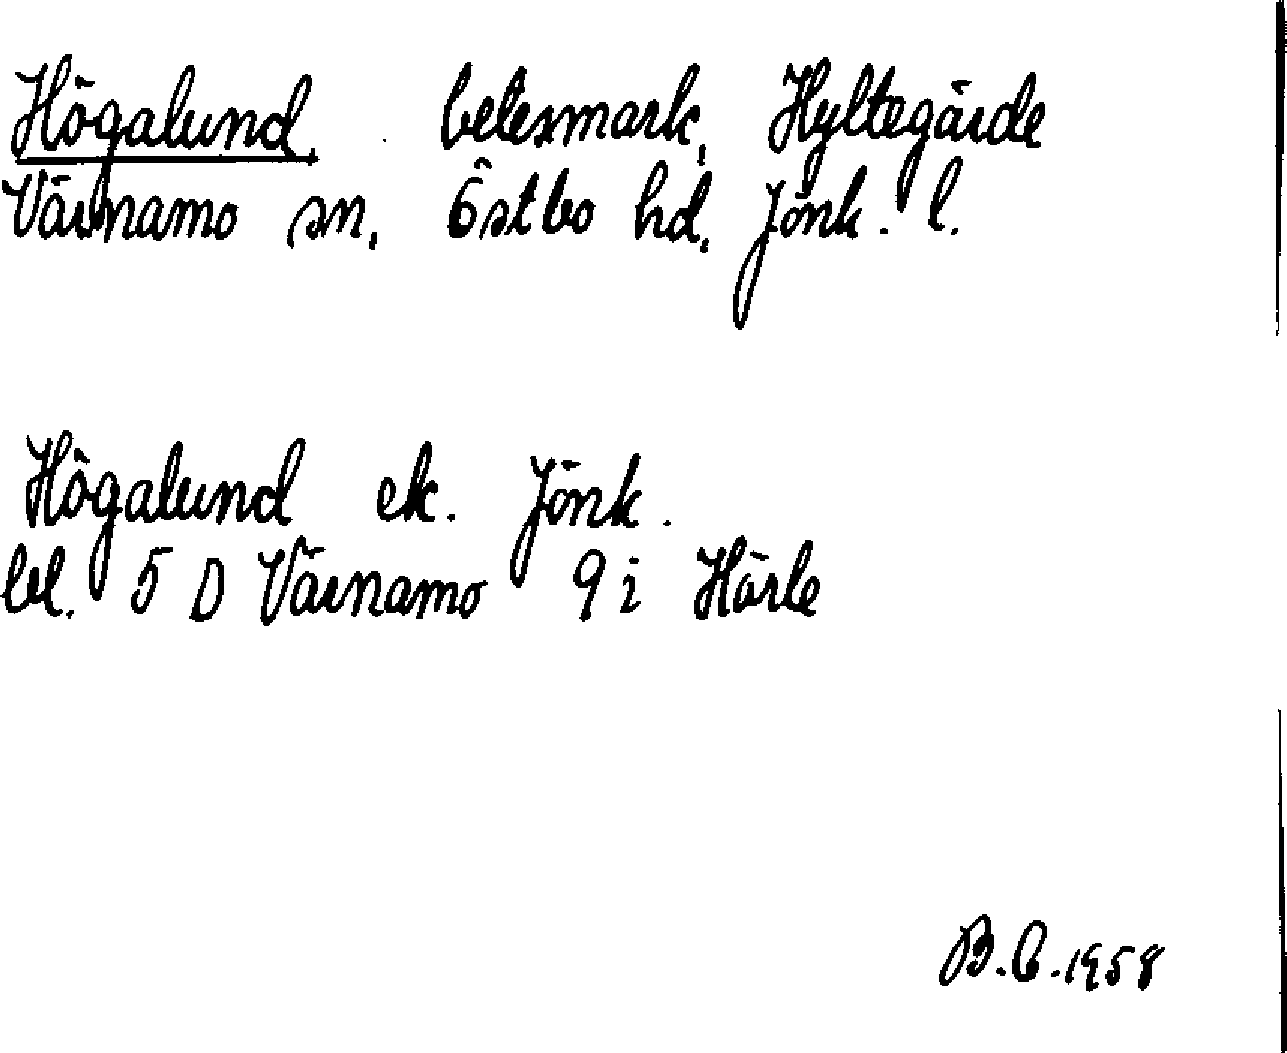 Högalund, betesmark, Hyltegärde
Värnamo sn, Östbo hd, Jönk. l.
Högalund ek. Jönk.
bl. 5 D Värnamo 9 i Hörle
B.C. 1958